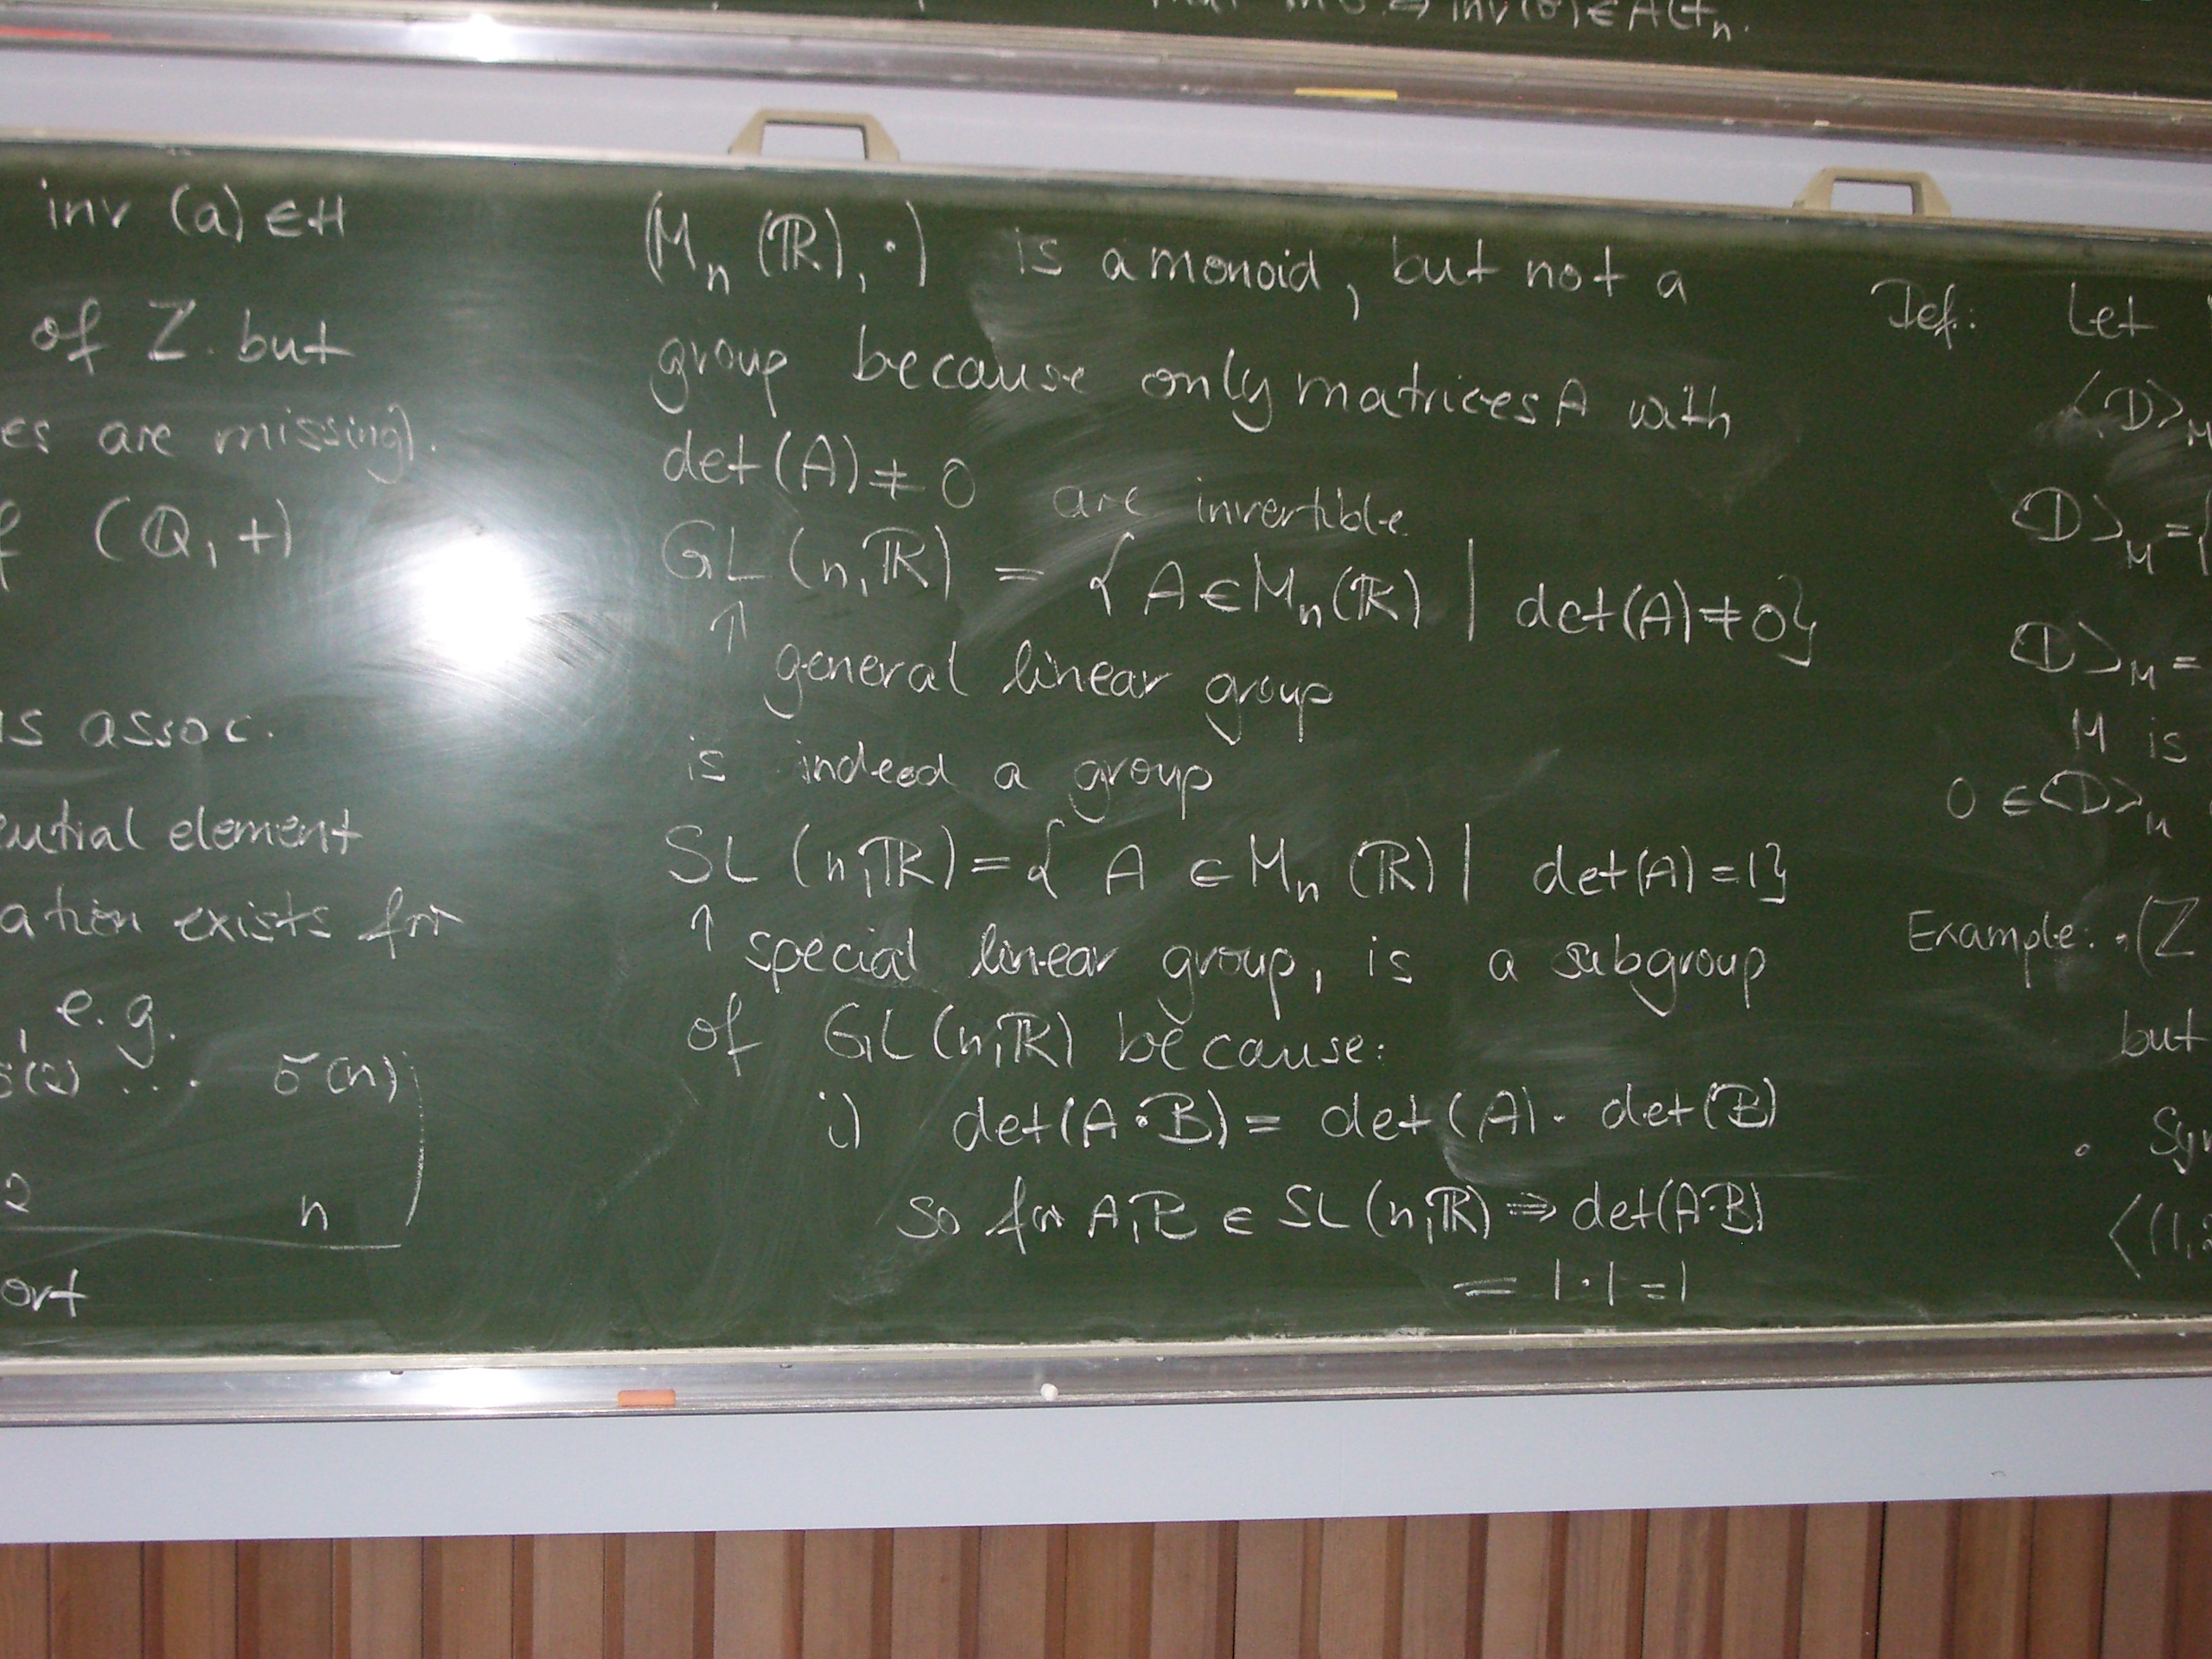 inv(σ) ∈ Alt_n.
inv (a) ∈ H
of Z but
es are missing).
f (Q, +)
is assoc.
ential element
ation exists for
, e.g.
σ(2) ... σ(n)
2 n
ort
(M_n (ℝ), ·) is a monoid, but not a
group because only matrices A with
det(A) ≠ 0 are invertible
GL (n,ℝ) = { A ∈ M_n(ℝ) | det(A) ≠ 0}
↑ general linear group
is indeed a group
SL (n,ℝ) = { A ∈ M_n (ℝ) | det(A) = 1}
↑ special linear group, is a subgroup
of GL(n,ℝ) because:
i) det(A·B) = det(A) · det(B)
so for A,B ∈ SL(n,ℝ) ⇒ det(A·B)
= 1·1 = 1
Def.: Let
⟨D⟩_M
⟨D⟩_M =
⟨D⟩_M =
M is
0 ∈ ⟨D⟩_M
Example: · (Z
but
· Sy
⟨(1,2